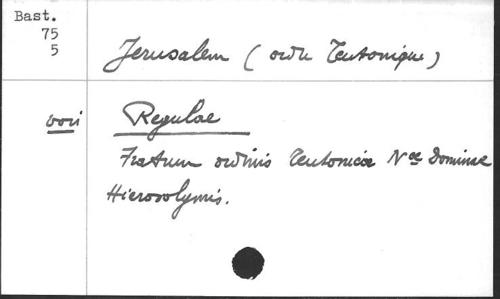 Bast.
75
5
Jerusalem (ordre Teutonique)
voir
Regulae
Fratrum ordinis Teutonicae Nae Dominae
Hierosolymis.